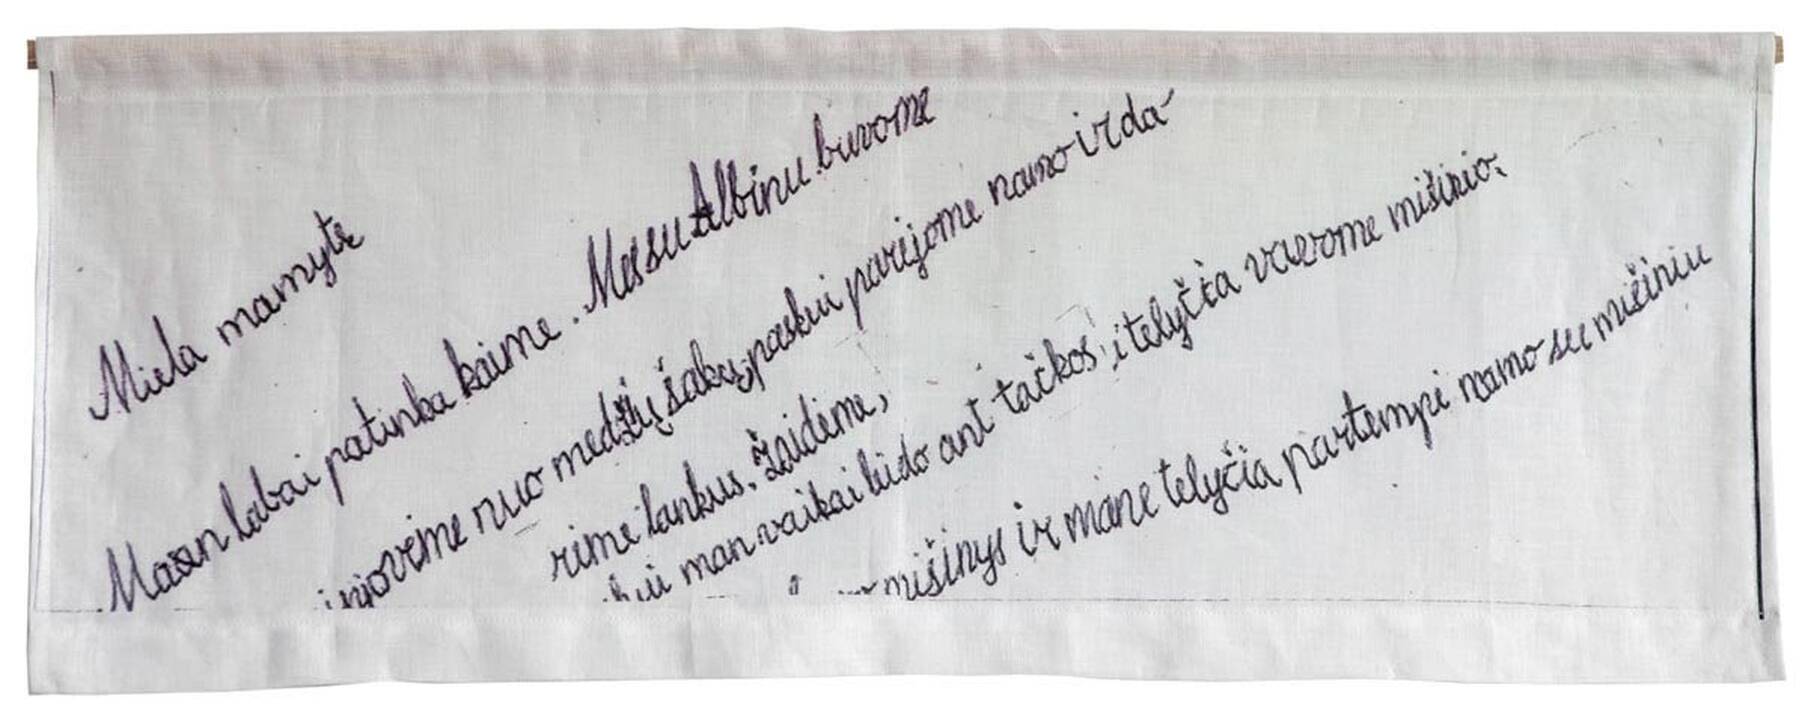 Miela mamytę
Masan labai patinka kaime. Messu Albinu buvome
injovėme nuo medžių šakų, paskui parėjome namo ir da-
rėme lankus. Žaidėme,
man vaikai lūdo ant tačkos, i telyčia važiavome mišinio.
mišinys ir mane telyčia partempi namo su mišiniu